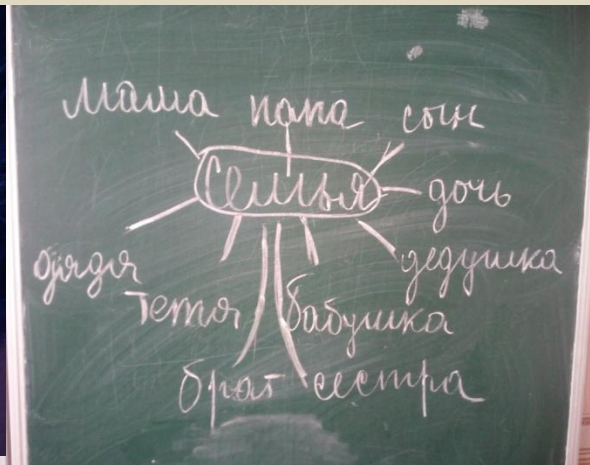 мама папа сын
Семья
дочь
дядя дедушка
тетя бабушка
брат сестра